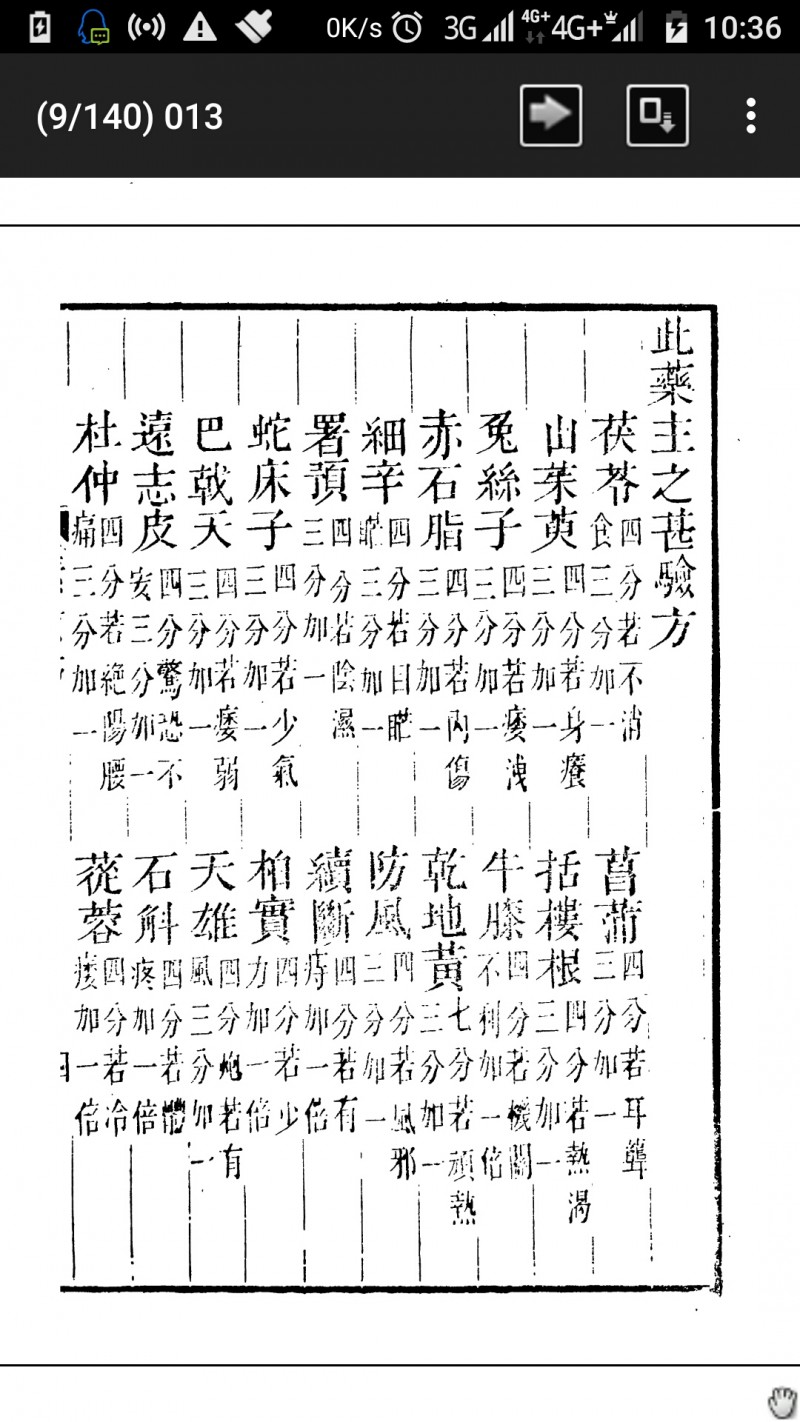 0K/s 3G 4G+ 4G+ 10:36
(9/140) 013
此藥主之甚驗方
茯苓四分若不消食三分加一
菖蒲四分若耳聾三分加一
山茱萸四分若身癢三分加一
括樓根四分若熱渴三分加一
兔絲子四分若痿洩三分加一
牛膝四分若機關不利加一倍
赤石脂四分若內傷三分加一
乾地黃七分若頑熱三分加一
細辛四分若目䀮䀮三分加一
防風四分若風邪三分加一
署預四分若陰濕三分加一
續斷四分若有痔加一倍
蛇床子四分若少氣三分加一
柏實四分若少力加一倍
巴戟天四分若痿弱三分加一
天雄四分炮若有風三分加一
遠志皮四分驚恐不安三分加一
石斛四分若體疼加一倍
杜仲四分若絶陽腰痛三分加一
蓯蓉四分若冷痿加一倍